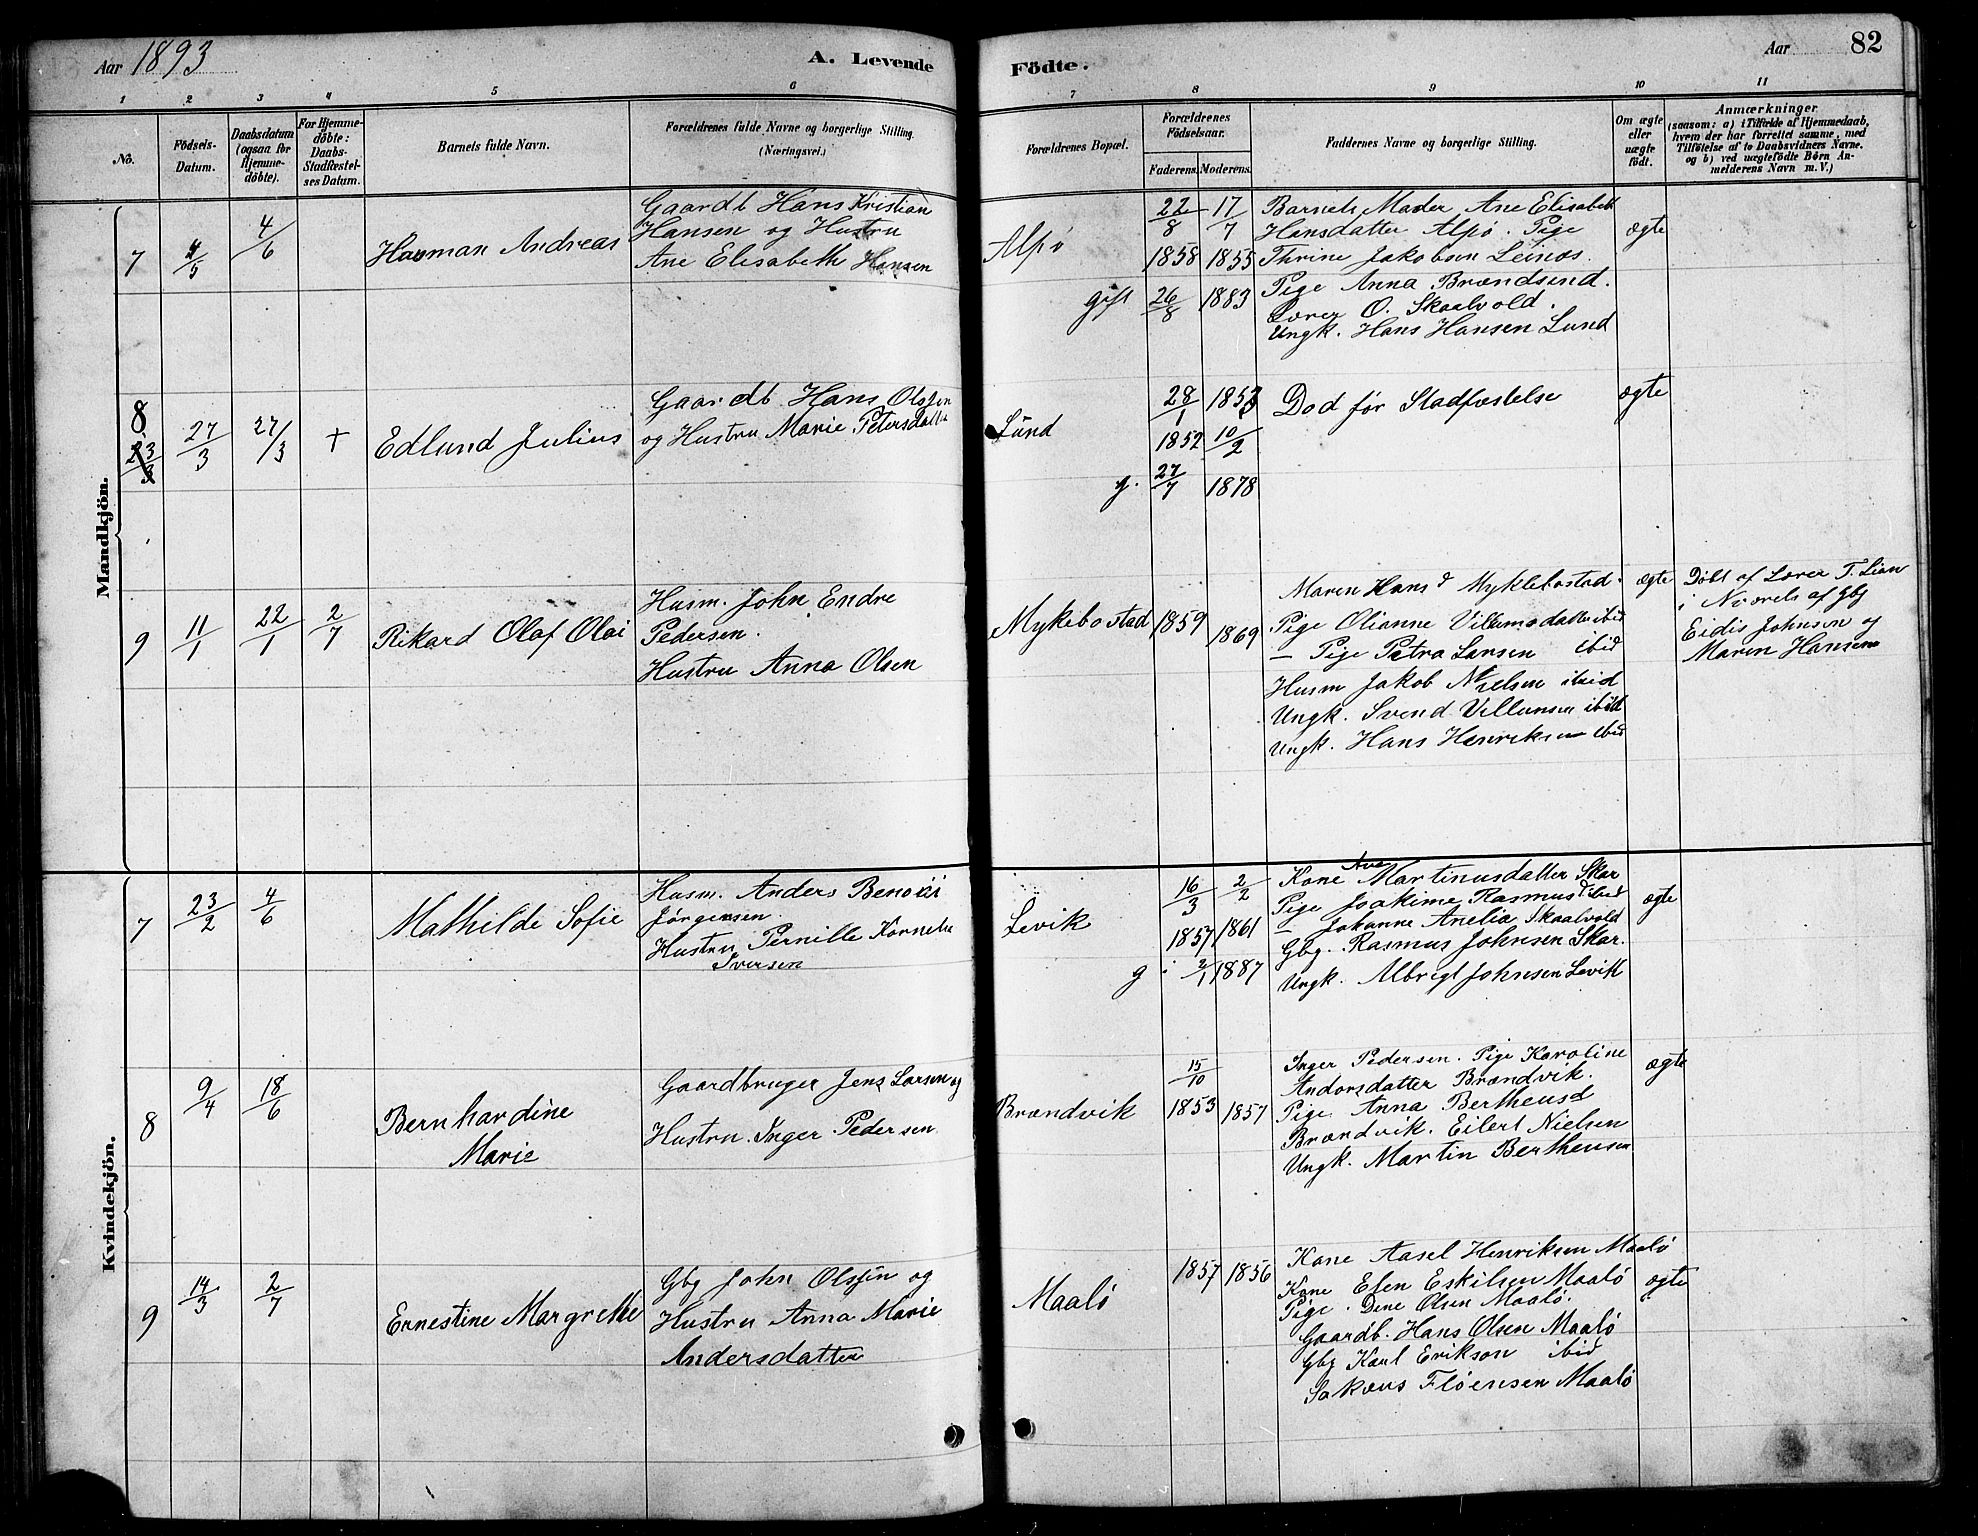 Aar 1893
A. Levende Födte.
Aar
82
1 2 3 4 5 6 7 8 9 10 11
No.
Födsels-Datum.
Daabsdatum (ogsaa for Hjemme-döbte).
For Hjemme-döbte: Daabs-Stadfæstel-ses Datum.
Barnets fulde Navn.
Forældrenes fulde Navne og borgerlige Stilling. (Næringsvei.)
Forældrenes Bopæl.
Forældrenes Födselsaar.
Faderens. Moderens.
Faddernes Navne og borgerlige Stilling.
Om ægte eller uægte födt.
Anmærkninger
(saasom: a) i Tilfælde af Hjemmedaab,
hvem der har forrettet samme, med
Tilföielse af to Daabsvidners Navne.
og b) ved uægtefödte Börn An-
melderens Navn m.V.)
Mandkjön.
7
4/5
4/6
Herman Andreas
Gaardb Hans Kristian
Hansen og Hustru
Ane Elisabeth Hansen
Alpø
22/8 17/7
1858 1855
gift 26/8 1883
Barnets Moder Ane Elisabeth
Hansdatter Alpø. Pige
Thrine Jakobsen Leinøs.
Pige Anna Brændsund.
Lærer O. Skaalvold.
Ungk. Hans Hansen Lund
ægte
8
23/3
27/3
27/3
+
Edlund Julius
Gaardb Hans Olsen
og Hustru Marie Petersdatter
Lund
28/1 1853
1852 10/2
g. 27/7 1878
Död før Stadfæstelse
ægte
9
11/1
22/1
2/7
Rikard Olaf Olai
Husm. John Endre
Pedersen.
Hustru Anna Olsen
Mykebostad
1859 1869
Maren Hansd Myklebostad.
Pige Olianne Villumsdatter ibid
— Pige Petra Larsen ibid
Husm Jakob Nielsen ibid
Ungk. Svend Villumsen ibid
Ungk. Hans Henriksen ibid
ægte
Döbt af Lærer T. Lian
i Nværels af Gbg
Eidis Johnsen og
Maren Hansen
Kvindekjön.
7
23/2
4/6
Mathilde Sofie
Husm. Anders Benoni
Jørgensen.
Hustru Pernille Kornelia
Iversen
Levik
16/3 2/2
1857 1861
g i 2/1 1887
Kone Ane Martinusdatter Skar
Pige Joakime Rasmusd ibid
— Johanne Anelia Skaalvold
Gbg. Rasmus Johnsen Skar.
Ungk. Albrigt Johnsen Levik
ægte
8
9/4
18/6
Bernhardine
Marie
Gaardbruger Jens Larsen og
Hustru. Inger Pedersen
Brændvik
15/10
1853 1857
Inger Pedersen. Pige Karoline
Andorsdatter Brændvik.
Pige Anna Bertheusd
Brændvik. Eilert Nielsen
Ungk. Martin Bertheusen
ægte
9
14/3
2/7
Ernestine Margrethe
Gbg John Olsen og
Hustru Anna Marie
Andersdatter
Maalø
1857 1856
Kone Aasel Henriksen Maalø
Kone Elen Eskilsen Maalø
Pige. Dene Olsen Maalø.
Gaardb. Hans Olsen Maalø
Gbg Karl Erikson ibid
Sakæus Fløensen Maalø
ægte